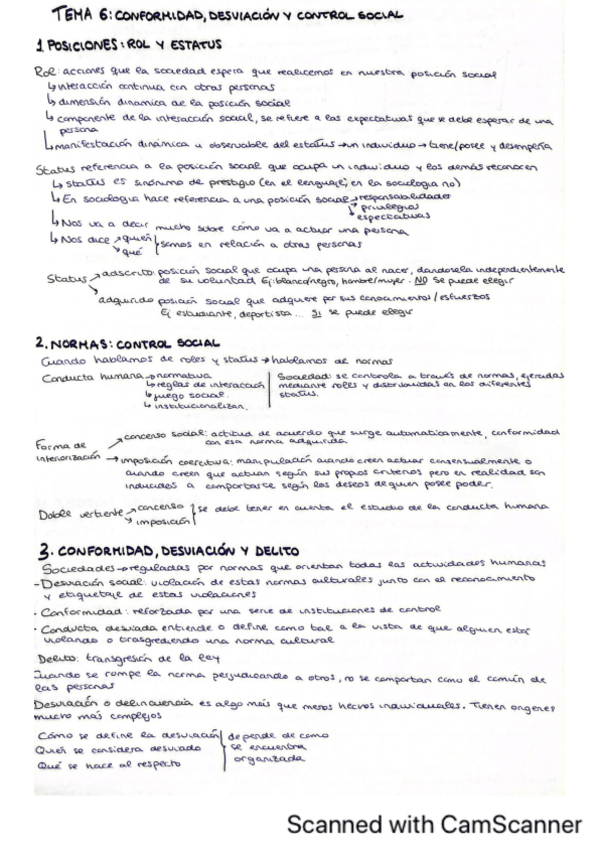 TEMA 6: CONFORMIDAD, DESVIACIÓN Y CONTROL SOCIAL
1 POSICIONES: ROL Y ESTATUS
Rol: acciones que la sociedad espera que realicemos en nuestra posición social
↳ interacción continua con otras personas
↳ dimensión dinamica de la posición social
↳ componente de la interacción social, se refiere a las expectativas que se debe esperar de una
persona
↳ manifestación dinámica u observable del estatus → un individuo → tiene/posee y desempeña
Status referencia a la posición social que ocupa un individuo y los demás reconocen
↳ status es sinónimo de prestigio (en el lenguaje, en la sociología no)
↳ En sociología hace referencia a una posición social → responsabilidades
privilegios
expectativas
↳ Nos va a decir mucho sobre cómo va a actuar una persona
↳ Nos dice → quien
qué
somos en relación a otras personas
Status → adscrito: posición social que ocupa una persona al nacer, dandosela independientemente
de su voluntad Ej: blanco/negro, hombre/mujer. NO se puede elegir
adquirido posición social que adquiere por sus conocimientos / esfuerzos
Ej estudiante, deportista... Si se puede elegir
2. NORMAS: CONTROL SOCIAL
Cuando hablamos de roles y status → hablamos de normas
Conducta humana → normativa
↳ reglas de interacción
↳ juego social
↳ institucionalizan.
Sociedad se controla a través de normas, ejercidas
mediante roles y distribuidas en los diferentes
status.
Forma de
interiorización
→ concenso social: actitud de acuerdo que surge automaticamente, conformidad
con esa norma adquirida
→ imposición coercitiva: manipulación cuando creen actuar consensualmente o
cuando creen que actuan según sus propios criterios pero en realidad son
inducidos a comportarse según los deseos de quien posee poder.
Doble vertiente → concenso
→ imposición
se debe tener en cuenta el estudio de la conducta humana
3. CONFORMIDAD, DESVIACIÓN Y DELITO
Sociedades → reguladas por normas que orientan todas las actividades humanas
- Desviación social: violación de estas normas culturales junto con el reconocimiento
y etiquetaje de estas violaciones
· Conformidad: reforzada por una serie de instituciones de control
· Conducta desviada entiende o define como tal a la vista de que alguien está
violando o trasgrediendo una norma cultural
Delito: transgresión de la ley
Cuando se rompe la norma perjudicando a otros, no se comportan como el común de
las personas
Desviación o delincuencia es algo más que meros hechos individuales. Tienen origenes
mucho más complejos
Cómo se define la desviación
Quién se considera desviado
Qué se hace al respecto
depende de como
se encuentra
organizada
Scanned with CamScanner